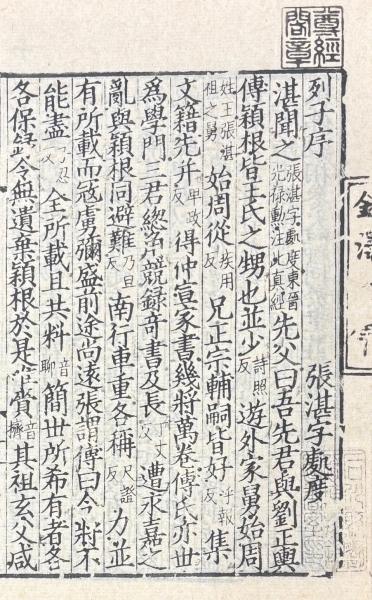 尊經閣章
列子序 張湛字處度
湛聞之張湛字處度東晉光祿勳注此真經先父曰吾先君與劉正輿
傅穎根皆王氏之甥也並少詩照反遊外家舅始周
姓王張湛祖之舅始周從疾用反兄正宗輔嗣皆好呼報反集
文籍先并卑政反得仲宣家書幾將萬卷傅氏亦世
爲學門三君總角競錄奇書及長丁丈反遭永嘉之
亂與穎根同避難乃旦反南行車重各稱尺證反力並
有所載而寇虜彌盛前途尚遠張謂傅曰今將不
能盡乃忍反全所載且共料音聊簡世所希有者各
各保錄令無遺棄穎根於是唯賫音擠其祖玄父咸